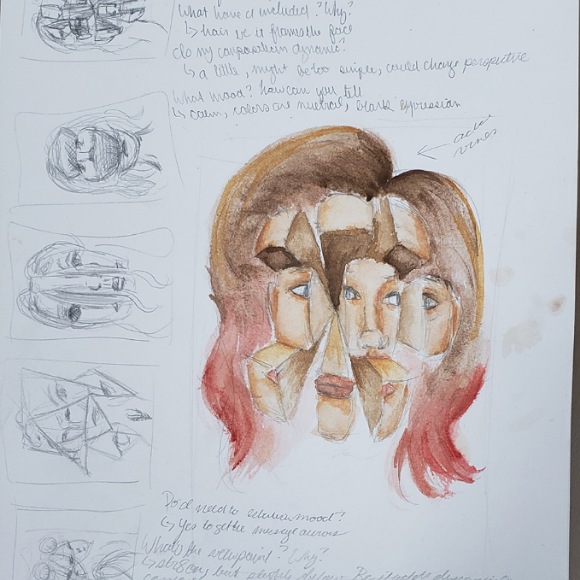 What have I included? Why?
↳ hair bc it frames the face
Is my composition dynamic?
↳ a little, might be too simple, could change perspective
What mood? how can you tell
↳ calm, colors are neutral, blank expression
Do I need to mood?
↳ Yes to get the message across
What's the viewpoint? Why?
but